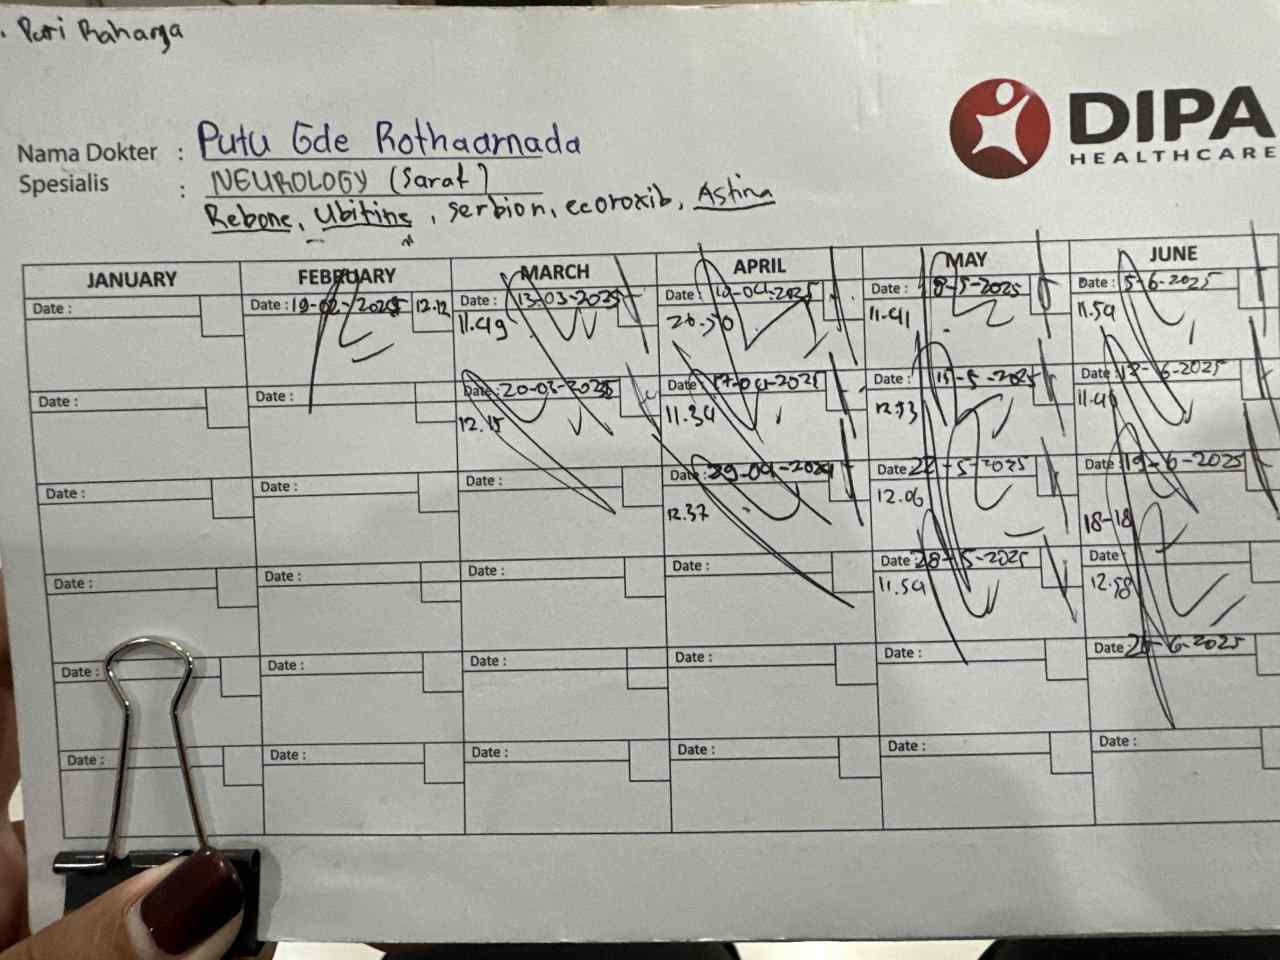 . Puri Raharga
DIPA
HEALTHCARE
Nama Dokter : Putu Gde Rothaarnada
Spesialis : NEUROLOGY (Saraf)
Rebone, Ubitine, serbion, ecoroxib, Astina
JANUARY FEBRUARY MARCH APRIL MAY JUNE
Date : Date : 19-02-2025 12.12 Date : 13-03-2025 Date : 10-04-2025 Date : 8-5-2025 Date : 5-6-2025
11.49 20.50 11.41 11.59
Date : Date : Date : 20-03-2025 Date : 17-04-2025 Date : 15-5-2025 Date : 12-6-2025
12.15 11.34 12.53
Date : Date : Date : Date : 29-04-2024 Date : 22-5-2025 Date : 19-6-2025
12.37 12.06 18-18
Date : Date : Date : Date : Date : 28-5-2025 Date :
11.54 12.58
Date : Date : Date : Date : Date : Date : -6-2025
Date : Date : Date : Date : Date : Date :